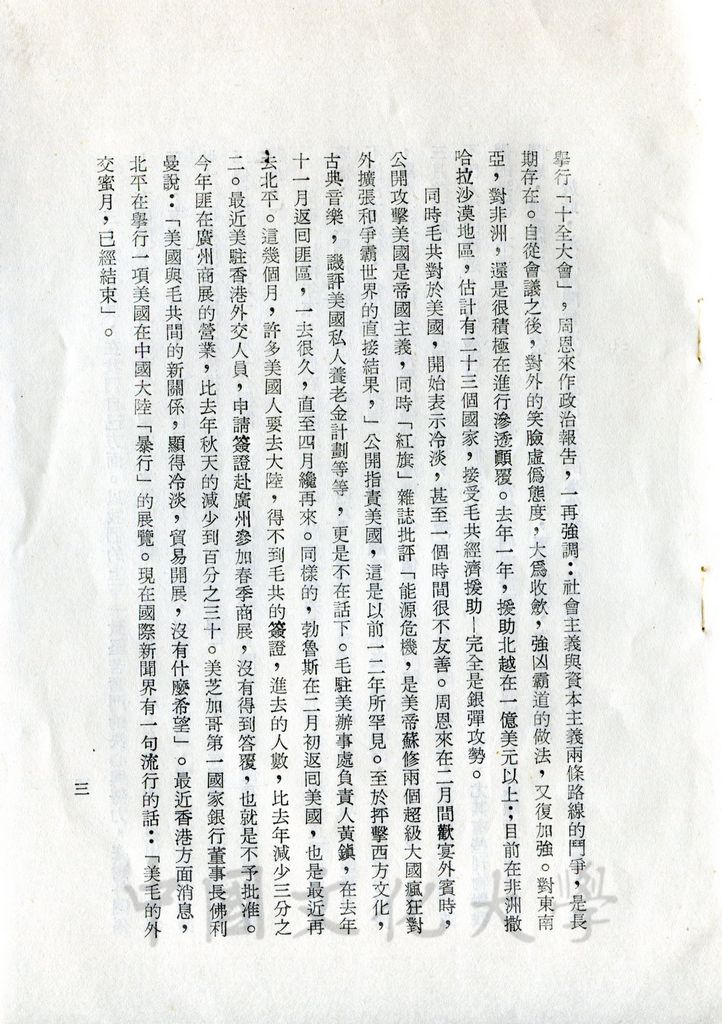 舉行「十全大會」，周恩來作政治報告，一再強調：社會主義與資本主義兩條路線的鬥爭，是長
期存在。自從會議之後，對外的笑臉虛偽態度，大爲收斂，強凶霸道的做法，又復加強。對東南
亞，對非洲，還是很積極在進行滲透顛覆。去年一年，援助北越在一億美元以上；目前在非洲撒
哈拉沙漠地區，估計有二十三個國家，接受毛共經濟援助—完全是銀彈攻勢。
同時毛共對於美國，開始表示冷淡，甚至一個時間很不友善。周恩來在二月間歡宴外賓時，
公開攻擊美國是帝國主義，同時「紅旗」雜誌批評「能源危機，是美帝蘇修兩個超級大國瘋狂對
外擴張和爭霸世界的直接結果，」公開指責美國，這是以前一二年所罕見。至於抨擊西方文化，
古典音樂，譏評美國私人養老金計劃等等，更是不在話下。毛駐美辦事處負責人黃鎮，在去年
十一月返回匪區，一去很久，直至四月纔再來。同樣的，勃魯斯在二月初返囘美國，也是最近再
去北平。這幾個月，許多美國人要去大陸，得不到毛共的簽證，進去的人數，比去年減少三分之
二。最近美駐香港外交人員，申請簽證赴廣州參加春季商展，沒有得到答覆，也就是不予批准。
今年匪在廣州商展的營業，比去年秋天的減少到百分之三十。美芝加哥第一國家銀行董事長佛利
曼說：「美國與毛共間的新關係，顯得冷淡，貿易開展，沒有什麼希望」。最近香港方面消息，
北平在舉行一項美國在中國大陸「暴行」的展覽。現在國際新聞界有一句流行的話：「美毛的外
交蜜月，已經結束」。
三
中國文化大學